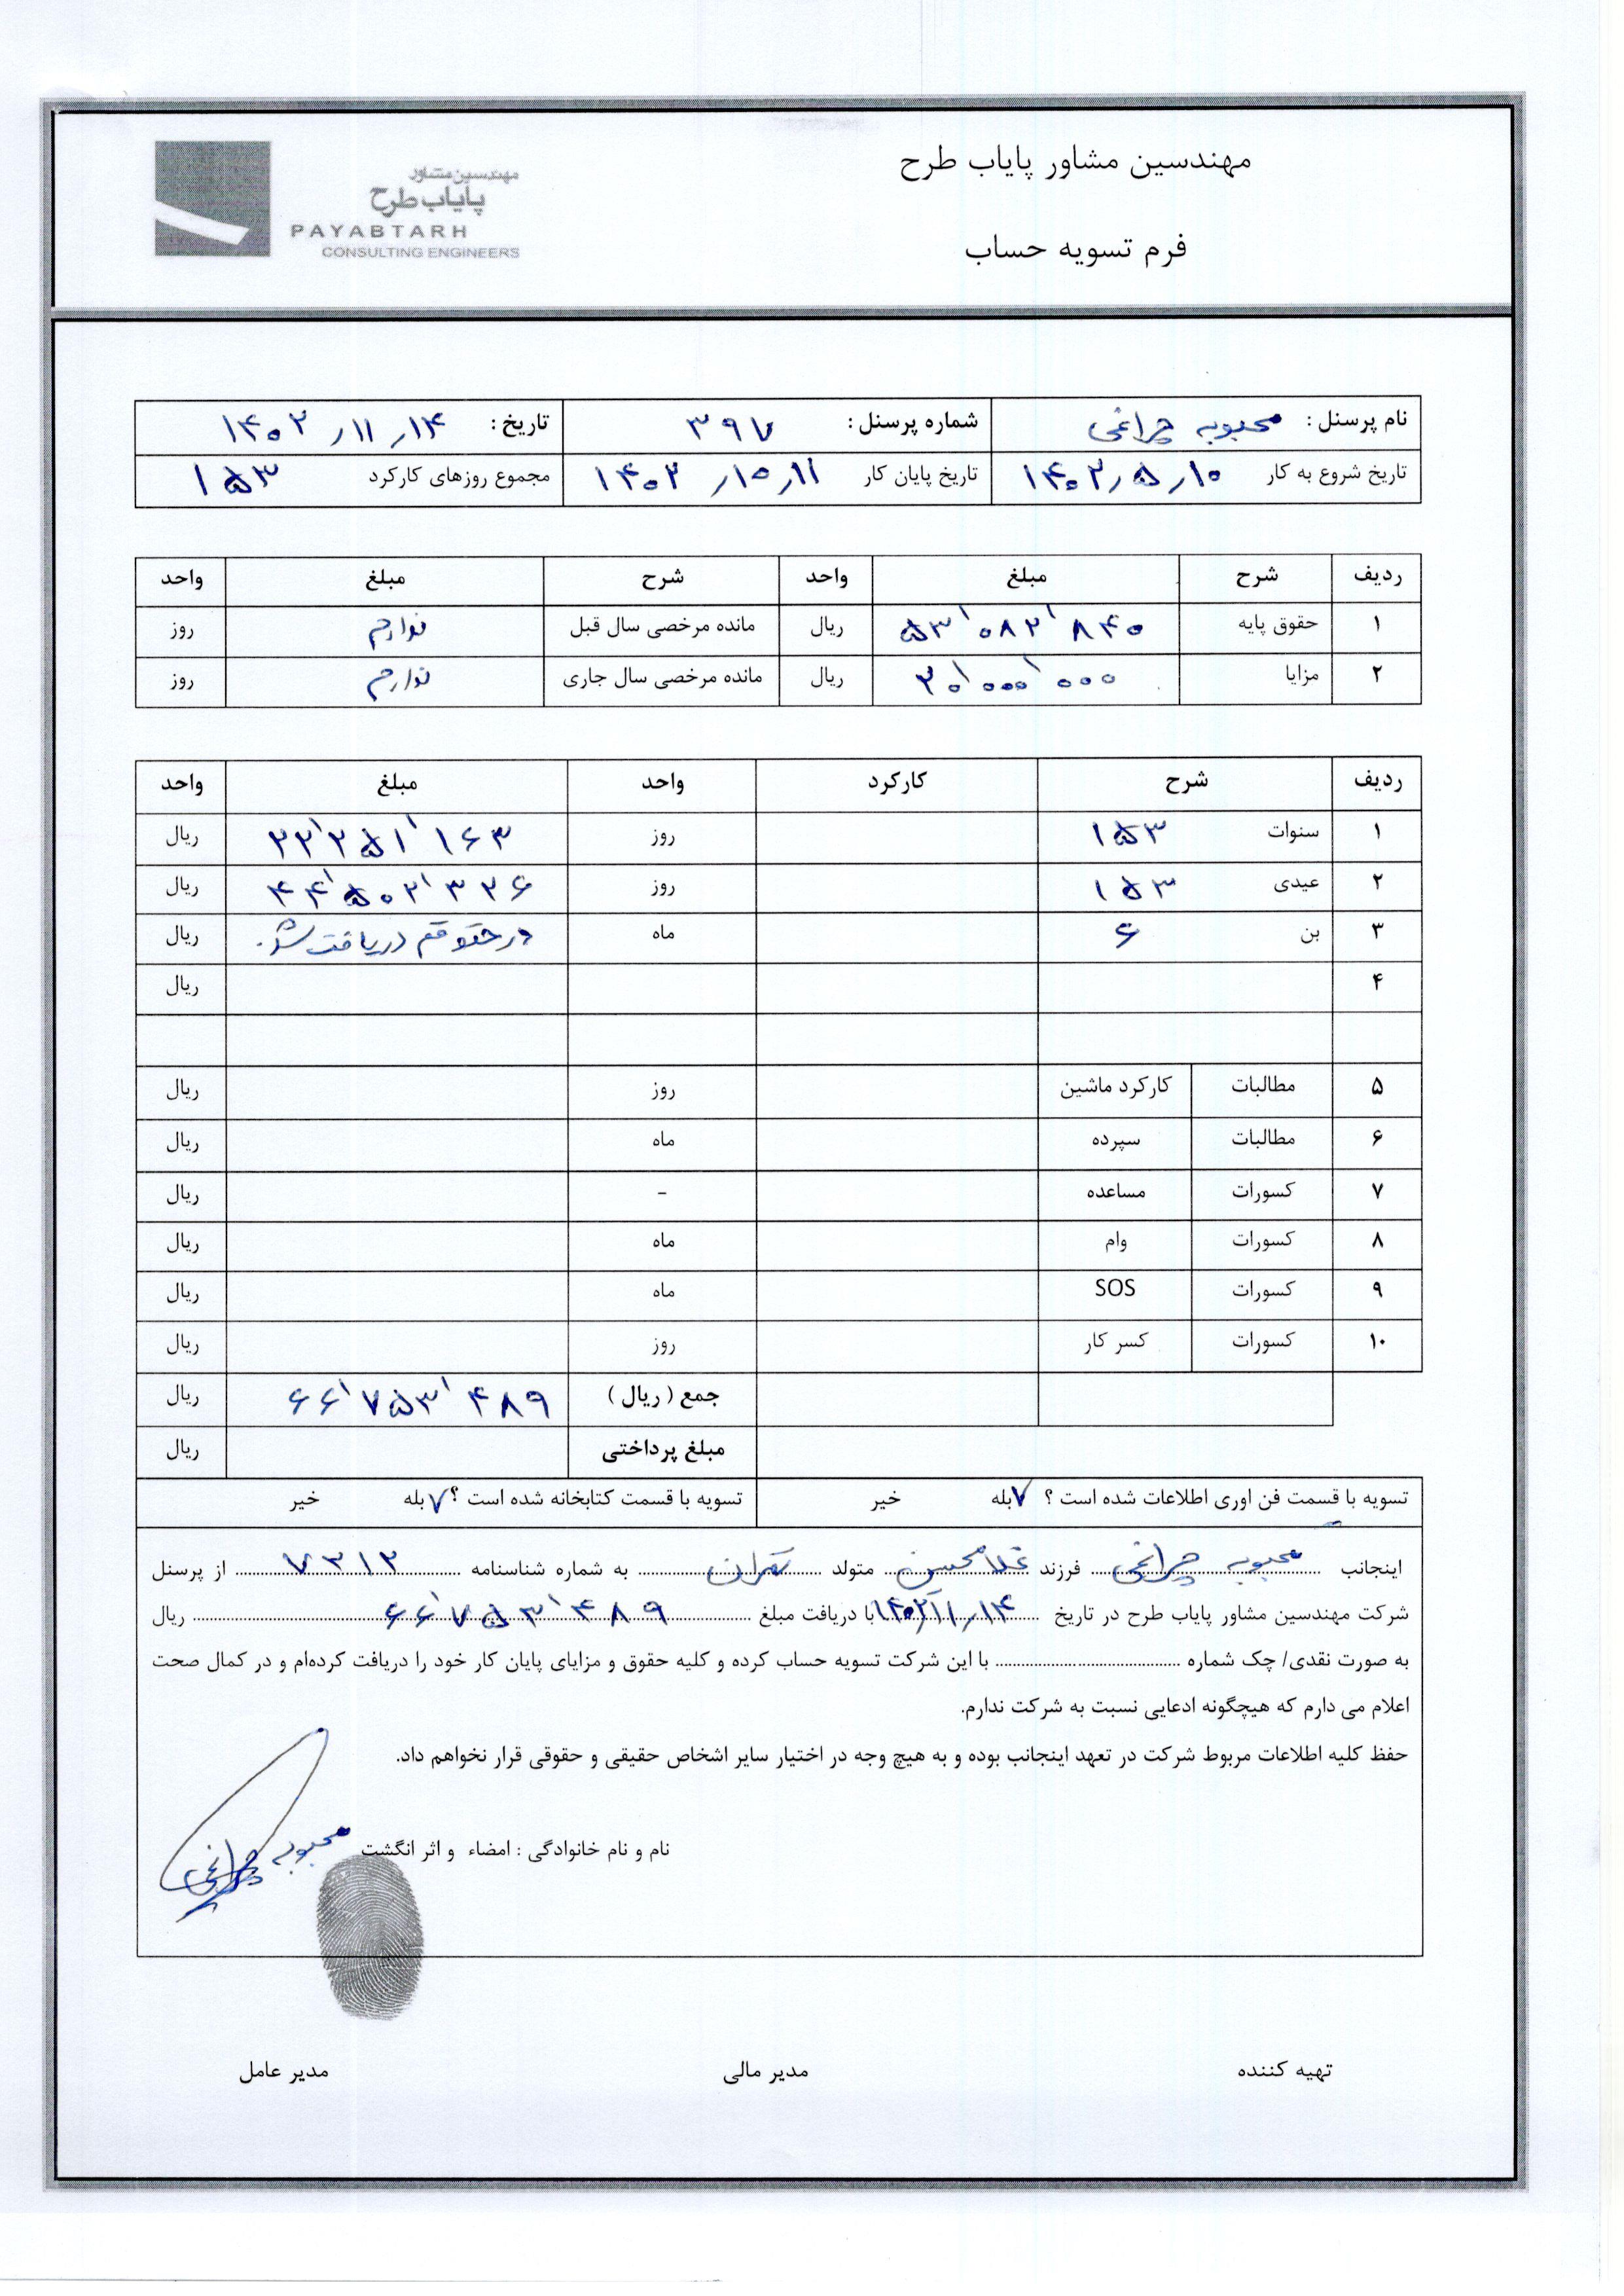 مهندسین مشاور پایاب طرح
فرم تسویه حساب
مهندسین مشاور
پایاب طرح
PAYABTARH
CONSULTING ENGINEERS
نام پرسنل : محبوبه چراغی شماره پرسنل : ۳۹۷ تاریخ : ۱۴۰۲/۱۱/۱۴
تاریخ شروع به کار ۱۴۰۲/۵/۱۰ تاریخ پایان کار ۱۴۰۲/۱۰/۱۱ مجموع روزهای کارکرد ۱۵۳
ردیف شرح مبلغ واحد شرح مبلغ واحد
۱ حقوق پایه ۵۳٬۰۸۲٬۸۴۰ ریال مانده مرخصی سال قبل ندارم روز
۲ مزایا ۲۰٬۰۰۰٬۰۰۰ ریال مانده مرخصی سال جاری ندارم روز
ردیف شرح کارکرد واحد مبلغ واحد
۱ سنوات ۱۵۳ روز ۲۲٬۲۵۱٬۱۶۳ ریال
۲ عیدی ۱۵۳ روز ۴۴٬۵۰۲٬۳۲۶ ریال
۳ بن ۶ ماه در حقوقم دریافت شد. ریال
۴ ریال
۵ مطالبات کارکرد ماشین روز ریال
۶ مطالبات سپرده ماه ریال
۷ کسورات مساعده - ریال
۸ کسورات وام ماه ریال
۹ کسورات SOS ماه ریال
۱۰ کسورات کسر کار روز ریال
جمع ( ریال ) ۶۶٬۷۵۳٬۴۸۹ ریال
مبلغ پرداختی ریال
تسویه با قسمت فن اوری اطلاعات شده است ؟ ✓بله خیر تسویه با قسمت کتابخانه شده است ؟ ✓بله خیر
اینجانب محبوبه چراغی فرزند غلامحسین متولد تهران به شماره شناسنامه ۷۳۱۲ از پرسنل
شرکت مهندسین مشاور پایاب طرح در تاریخ ۱۴۰۲/۱۱/۱۴ با دریافت مبلغ ۶۶٬۷۵۳٬۴۸۹ ریال
به صورت نقدی/ چک شماره ........ با این شرکت تسویه حساب کرده و کلیه حقوق و مزایای پایان کار خود را دریافت کرده‌ام و در کمال صحت
اعلام می دارم که هیچگونه ادعایی نسبت به شرکت ندارم.
حفظ کلیه اطلاعات مربوط شرکت در تعهد اینجانب بوده و به هیچ وجه در اختیار سایر اشخاص حقیقی و حقوقی قرار نخواهم داد.
نام و نام خانوادگی : امضاء و اثر انگشت محبوبه چراغی
تهیه کننده مدیر مالی مدیر عامل